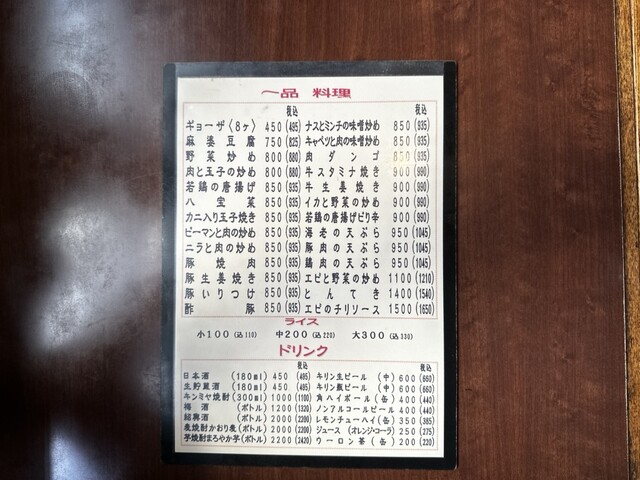 一品 料理
税込 税込
ギョーザ〈8ヶ〉 450(495) ナスとミンチの味噌炒め 850(935)
麻婆豆腐 750(825) キャベツと肉の味噌炒め 850(935)
野菜炒め 800(880) 肉ダンゴ 850(935)
肉と玉子の炒め 800(880) 牛スタミナ焼き 900(990)
若鶏の唐揚げ 850(935) 牛生姜焼き 900(990)
八宝菜 850(935) イカと野菜の炒め 900(990)
カニ入り玉子焼き 850(935) 若鶏の唐揚げピリ辛 900(990)
ピーマンと肉の炒め 850(935) 海老の天ぷら 950(1045)
ニラと肉の炒め 850(935) 豚肉の天ぷら 950(1045)
豚焼肉 850(935) 鶏肉の天ぷら 950(1045)
豚生姜焼き 850(935) エビと野菜の炒め 1100(1210)
豚いりつけ 850(935) とんてき 1400(1540)
酢豚 850(935) エビのチリソース 1500(1650)
ライス
小100(込110) 中200(込220) 大300(込330)
ドリンク
税込 税込
日本酒 (180ml) 450 (495) キリン生ビール (中) 600(660)
生貯蔵酒 (180ml) 450 (495) キリン瓶ビール (中) 600(660)
キンミヤ焼酎(300ml) 1000(1100) 角ハイボール(缶) 400(440)
梅酒 (ボトル) 1200(1320) ノンアルコールビール 400(440)
紹興酒 (ボトル) 2000(2200) レモンチューハイ(缶) 350(385)
麦焼酎かおり麦(ボトル) 2000(2200) ジュース (オレンジ・コーラ) 250(275)
芋焼酎まろやか芋(ボトル) 2200(2420) ウーロン茶(缶) 200(220)